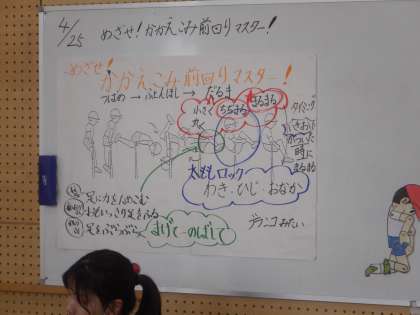 4/25 めざせ！かかえこみ前回りマスター！
めざせ！
かかえこみ前回りマスター！
つばめ→ふとんほし→だるま
小さく
ちぢまる
まるまる
タイミング
時に
太ももロック
わき・ひじ・おなか
足に力をためこむ
おもいっきり足をふる
足をぶらぶら
まげて のばして
ブランコみたい